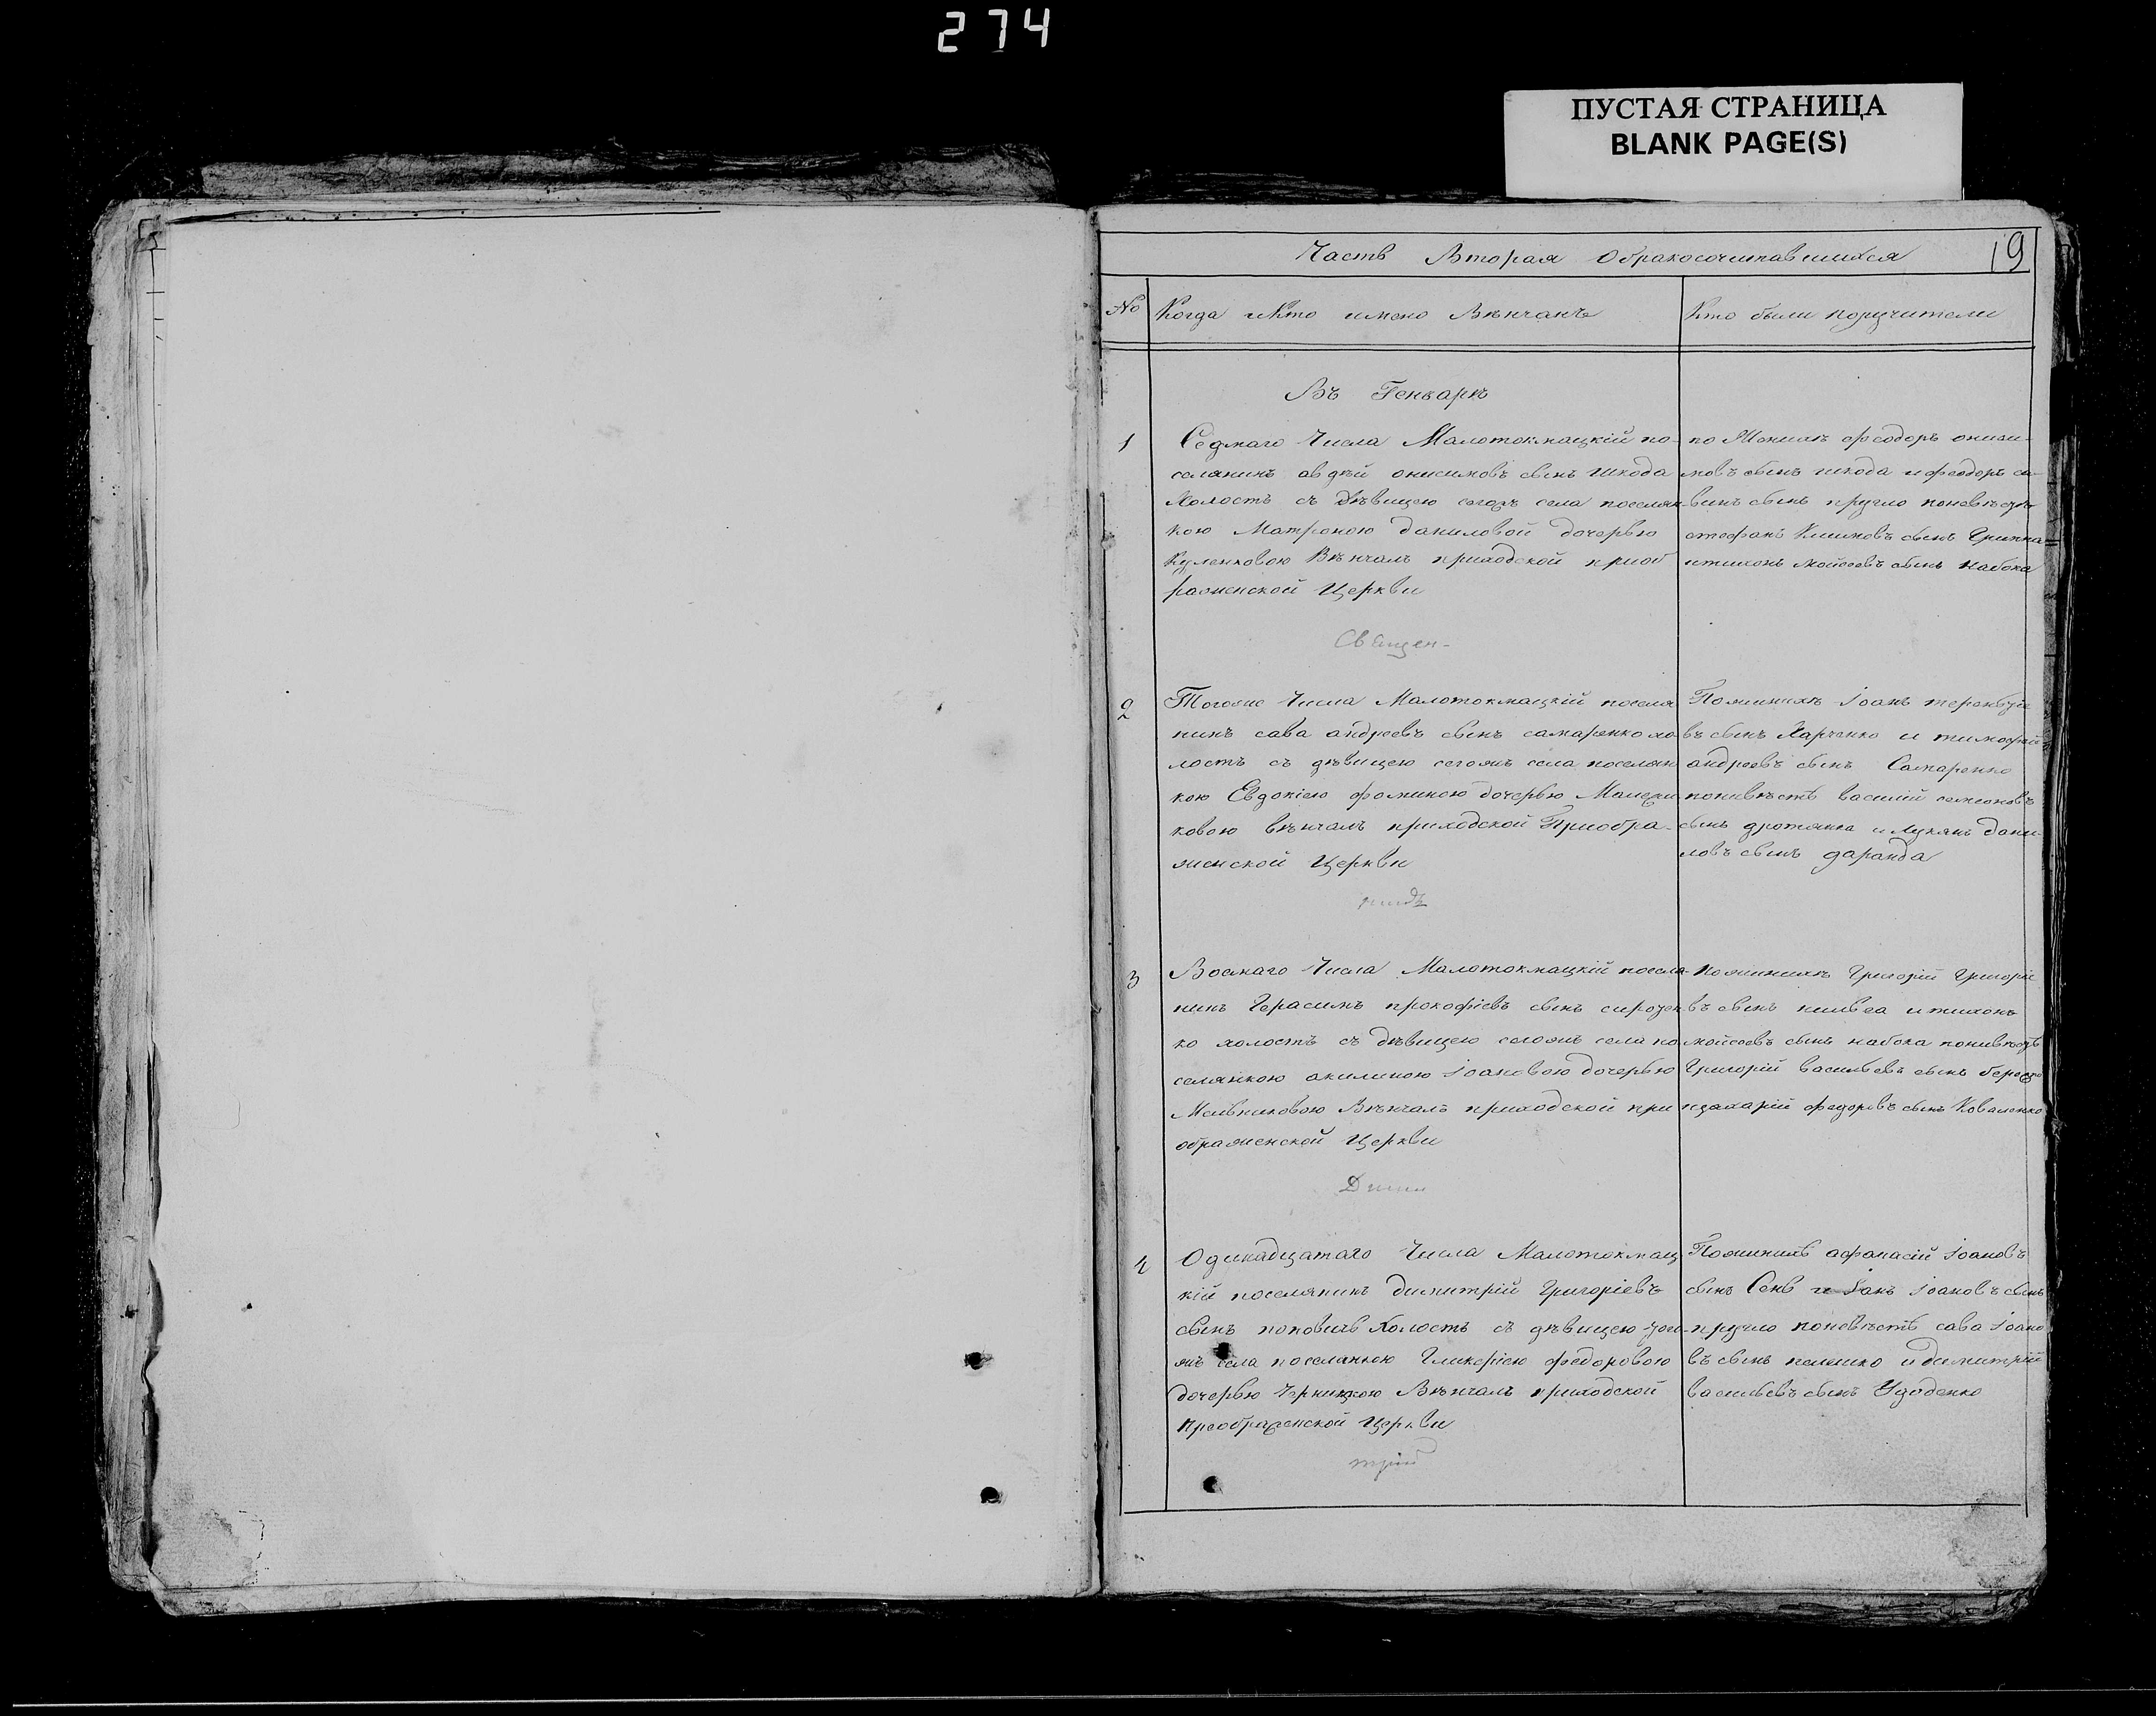 274
ПУСТАЯ СТРАНИЦА
BLANK PAGE(S)
Часть Вторая Обракосочитавшихся
19
№ Когда и Кто имено Вѣнчанъ
Кто были поручители
Въ Генваре
1
Седмаго Числа Малотокмацкій по-
селянинъ авдѣй онисимовъ сынъ шкода
Холостъ съ дѣвицею сегожъ села поселян
кою Матроною даниловой дочерью
Куленковою Вѣнчалъ приходской приоб
раженской Церкви
по Женихѣ феодоръониси-
мовъ сынъ шкода и феодоръ са-
винъ сынъ кругло поневѣсте
стефанъ Климовъ сынъ
итихонъ мойсеевъ сынъ набока
Священ-
2
Тогоже Числа Малотокмацкій поселя
нинъ сава андреевъ сынъ самаренко хо
лостъ съ дѣвицею сегожъ села поселян
кою Евдокіею фоминою дочерью
ковою вѣнчалъ приходской Приобра-
женской Церкви
Поженихѣ Іоанъ терентіе
въ сынъ Харченко и тимофей
андреевъ сынъ Самаренко
поневѣстѣ василій семеоновъ
сынъ дротянка илукянъ дани-
ловъ сынъ даранда
3
Восмаго Числа Малотокмацкій поселя-
нинъ Герасимъ прокофіевъ сынъ сирожен
ко холостъ съ дѣвицею сегожъ села по
селянкою акилиною Іоановою дочерью
Мельниковою Вѣнчалъ приходской при
ображенской Церкви
Поженихѣ Григорій Григоріе
въ сынъ итихонъ
мойсеевъ сынъ набока поневѣстѣ
Григорій васильевъ сынъ
изахарій федоровъ сынъ Коваленко
4
Одинадцатаго Числа Малотокмац
кій поселянинъ димитрій Григоріевъ
сынъ поповичь Холостъ съ дѣвицею тоги-
жъ села поселянкою Гликеріею федоровою
дочерью Черницкою Вѣнчалъ приходской
Преображенской Церкви
Поженихѣ афанасій Іоановъ
сынъ Сень и Іоанъ Іоановъ сынъ
кругло поневѣстѣ сава Іоано
въ сынъ пелешко идимитрій
васильевъ сынъ Удоденко
трій